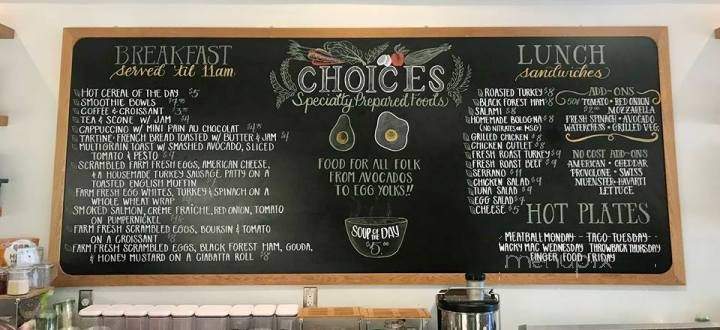 BREAKFAST
served 'til 11am
HOT CEREAL OF THE DAY $5
SMOOTHIE BOWLS
COFFEE & CROISSANT
TEA & SCONE W/ JAM $4
CAPPUCCINO W/ MINI PAIN AU CHOCOLAT
TARTINE: FRENCH BREAD TOASTED W/ BUTTER & JAM $4
MULTIGRAIN TOAST W/ SMASHED AVOCADO, SLICED
TOMATO & PESTO
SCRAMBLED FARM FRESH EGGS, AMERICAN CHEESE,
& A HOUSEMADE TURKEY SAUSAGE PATTY ON A
TOASTED ENGLISH MUFFIN
FARM FRESH EGG WHITES, TURKEY & SPINACH ON A
WHOLE WHEAT WRAP
SMOKED SALMON, CRÈME FRAÎCHE, RED ONION, TOMATO
ON PUMPERNICKEL
FARM FRESH SCRAMBLED EGGS, BOURSIN & TOMATO
ON A CROISSANT $8
FARM FRESH SCRAMBLED EGGS, BLACK FOREST HAM, GOUDA,
& HONEY MUSTARD ON A CIABATTA ROLL $8
CHOICES
Specialty Prepared Foods
FOOD FOR ALL FOLK
FROM AVOCADOS
TO EGG YOLKS!!
SOUP OF THE DAY
$5.00
LUNCH
sandwiches
ROASTED TURKEY $8
BLACK FOREST HAM $8
SALAMI $8
HOMEMADE BOLOGNA $8
(NO NITRATES OR MSG)
GRILLED CHICKEN $8
CHICKEN CUTLET $8
FRESH ROAST TURKEY $9
FRESH ROAST BEEF $9
SERRANO $11
CHICKEN SALAD $9
TUNA SALAD $9
EGG SALAD
CHEESE $5
ADD-ONS
TOMATO • RED ONION
MOZZARELLA
FRESH SPINACH • AVOCADO
WATERCRESS • GRILLED VEG.
NO COST ADD-ONS
AMERICAN • CHEDDAR
PROVOLONE • SWISS
MUENSTER • HAVARTI
LETTUCE
HOT PLATES
MEATBALL MONDAY TACO TUESDAY
WACKY MAC WEDNESDAY THROWBACK THURSDAY
FINGER FOOD FRIDAY
menupix